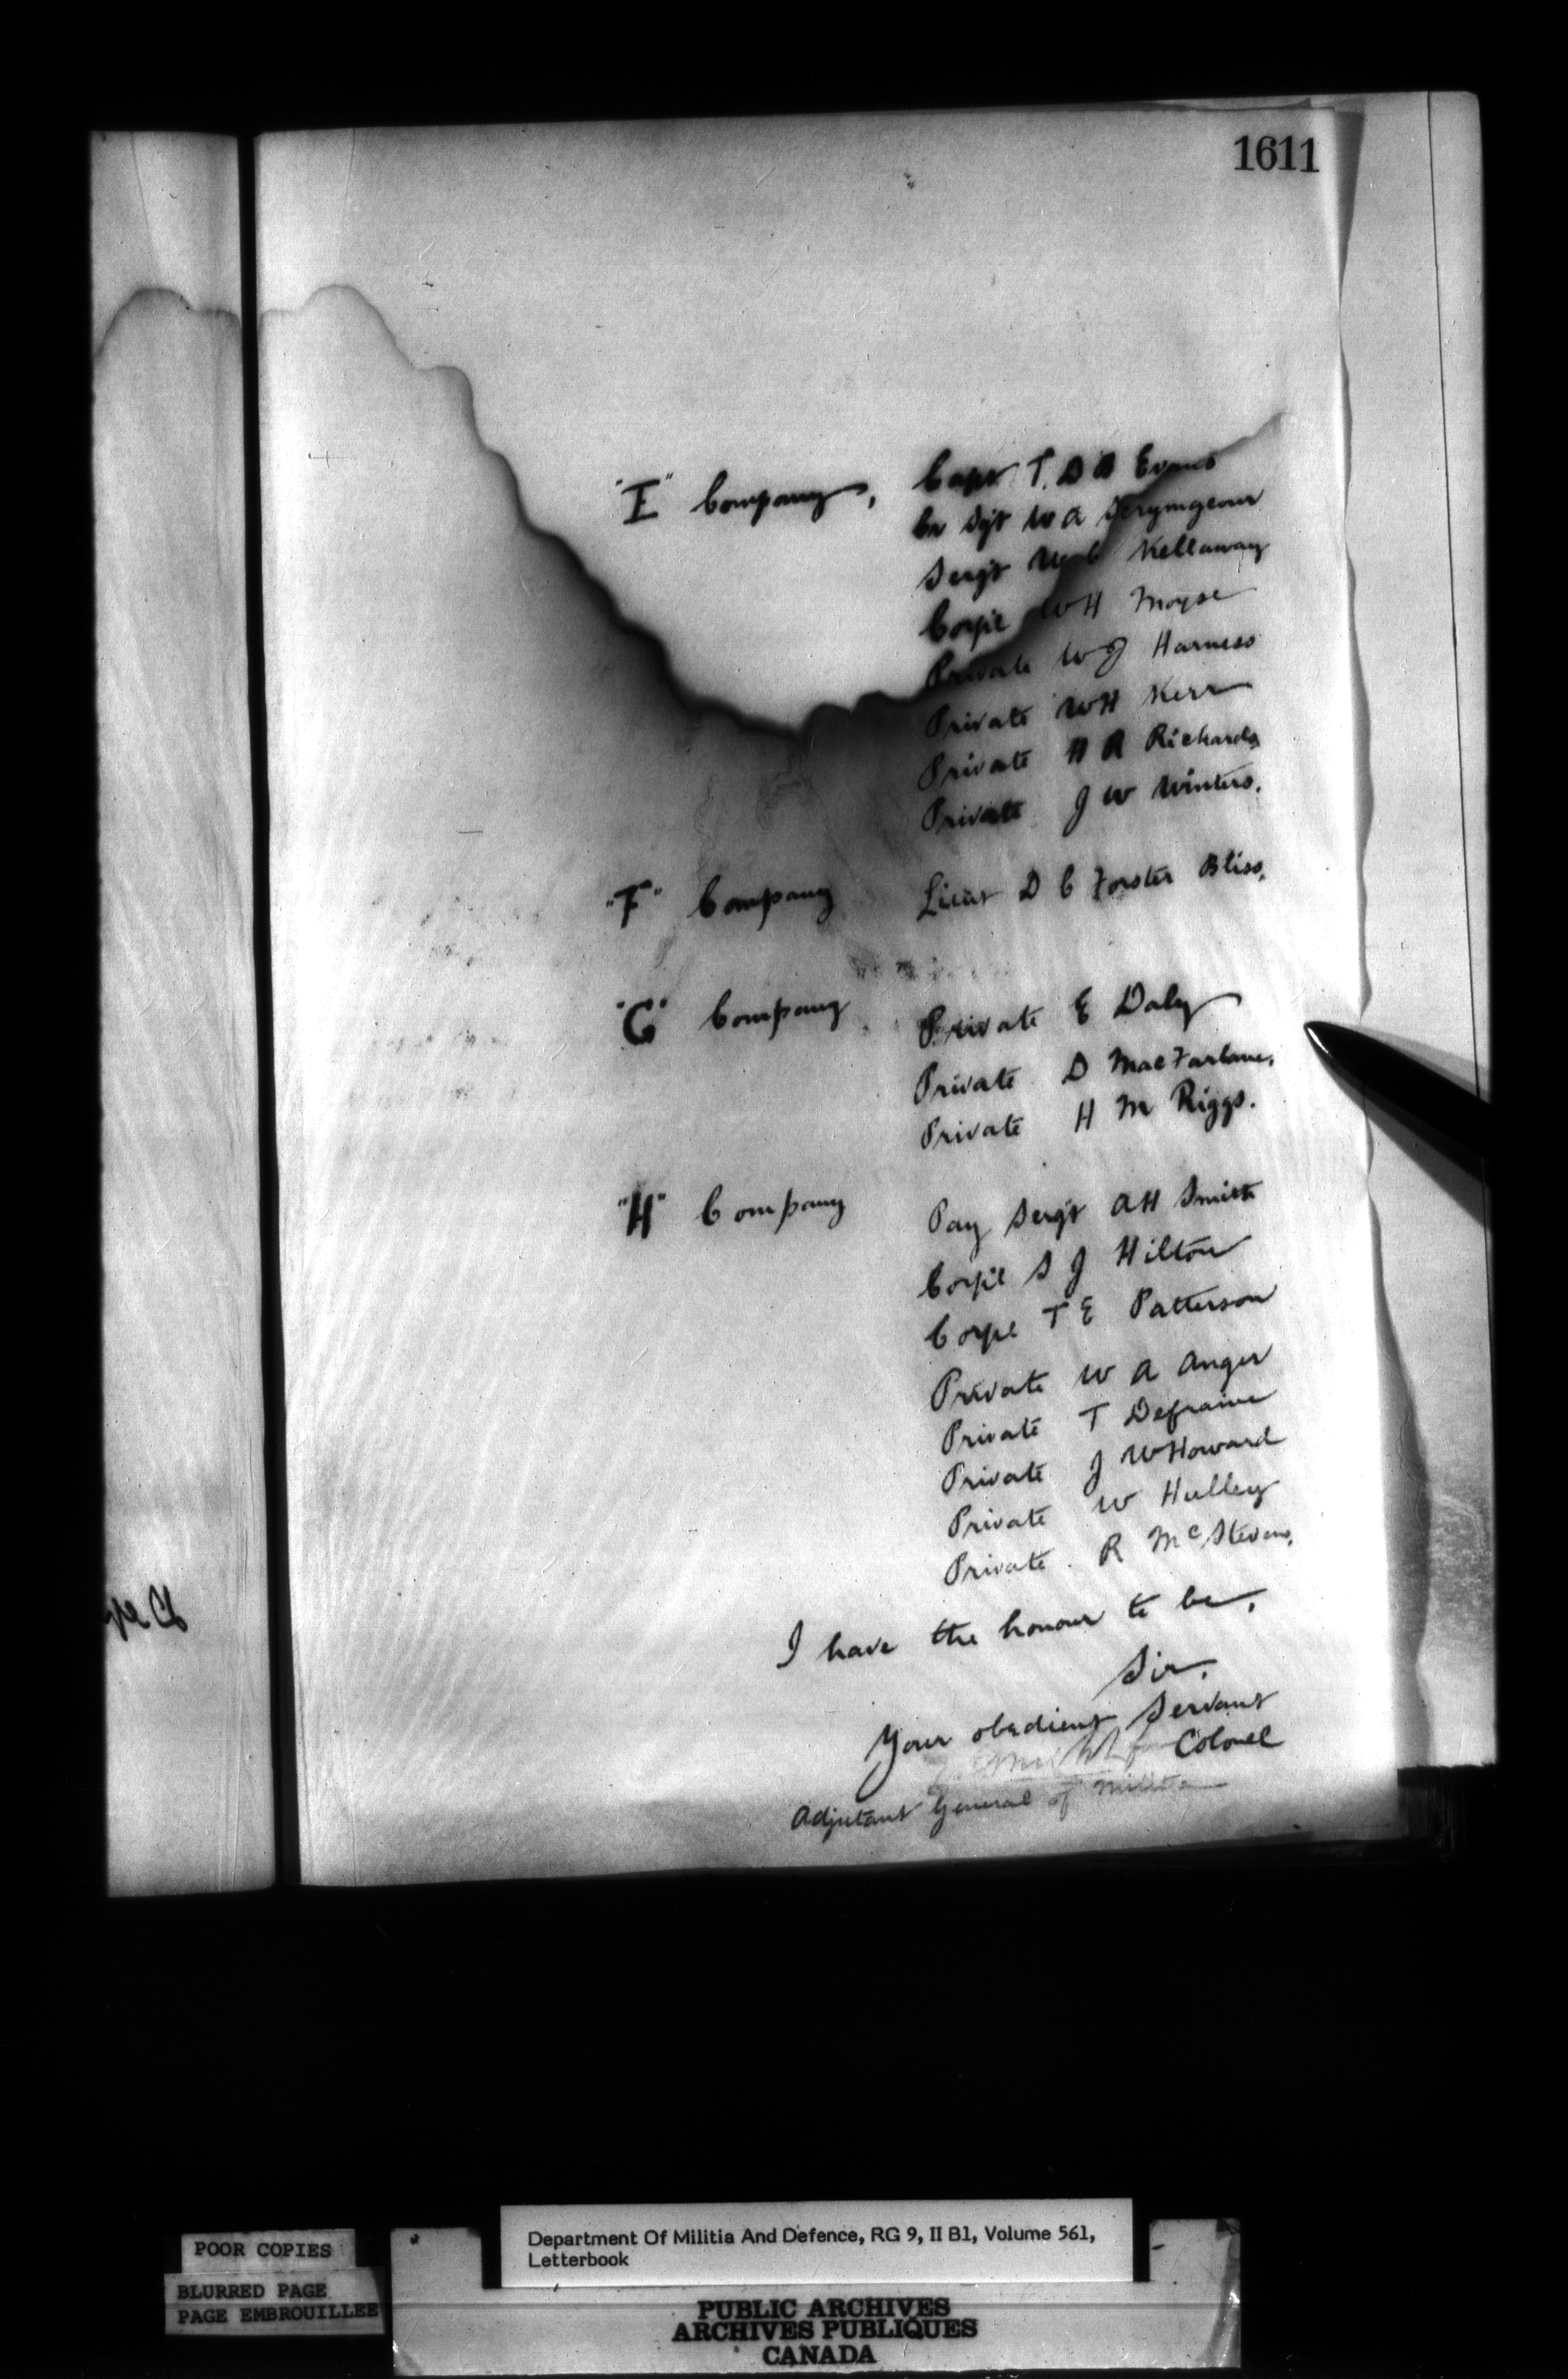 1611
"I" Company, Capt T. D B Evans
Cr Sgt W A Scrymgeour
Sergt Kellaway
Corpl W H Moyse
Private W J Harness
Private W H Kerr
Private H R Richards,
Private J W Winters.
"F" Company Lieut D C Forster Bliss,
"G" Company Private E Daly
Private D MacFarlane,
Private H M Riggs.
"H" Company Pay Sergt A H Smith
Corpl S J Hilton
Corpl T E Patterson
Private W A Anger
Private T Defraine
Private J W Howard
Private W Hulley
Private. R McStevens,
I have the honour to be,
Sir,
Your obedient Servant
Colonel
Adjutant General of Militia
POOR COPIES
BLURRED PAGE
PAGE EMBROUILLEE
Department Of Militia And Defence, RG 9, II B1, Volume 561,
Letterbook
PUBLIC ARCHIVES
ARCHIVES PUBLIQUES
CANADA